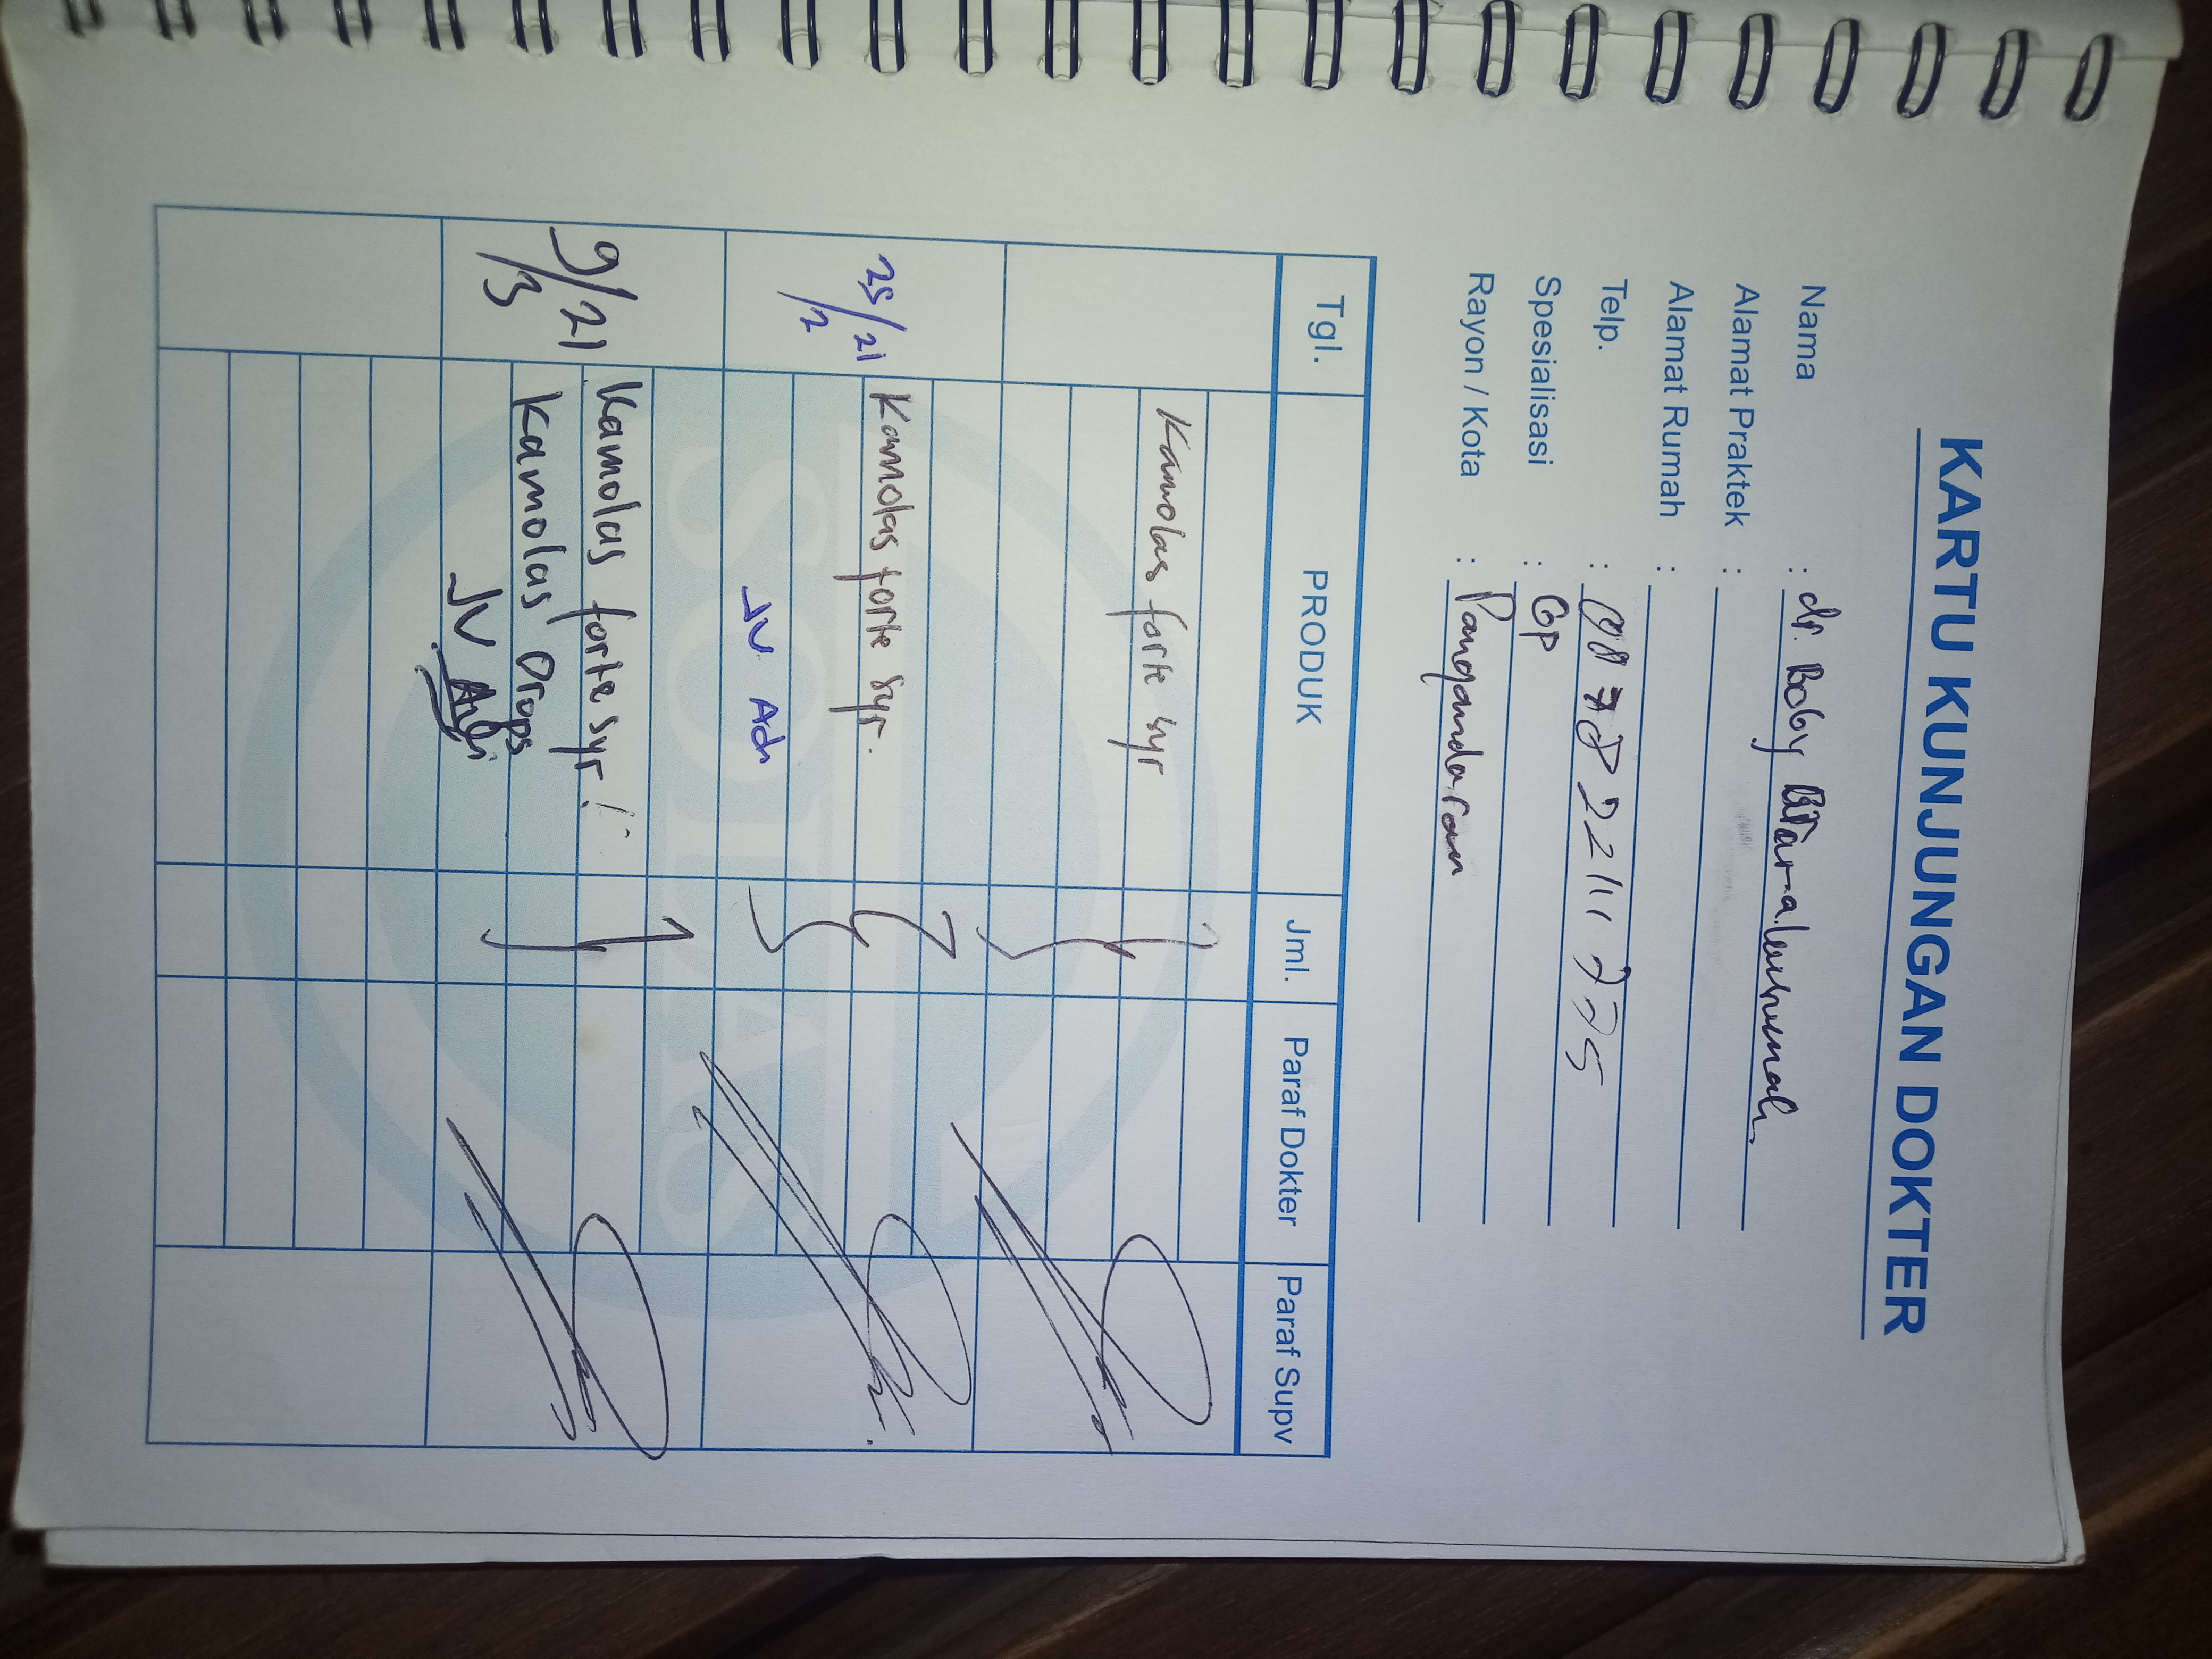 KARTU KUNJUNGAN DOKTER
Nama : dr. Boby
Alamat Praktek :
Alamat Rumah :
Telp. :
Spesialisasi : GP
Rayon / Kota : Pangandaran
Tgl. PRODUK Jml. Paraf Dokter Paraf Supv
Kamolas forte syr
25/21 Kamolas forte syr.
/2
JV Adi
9/21 Kamolas forte syr
/3 Kamolas Drops
JV
SOHAS